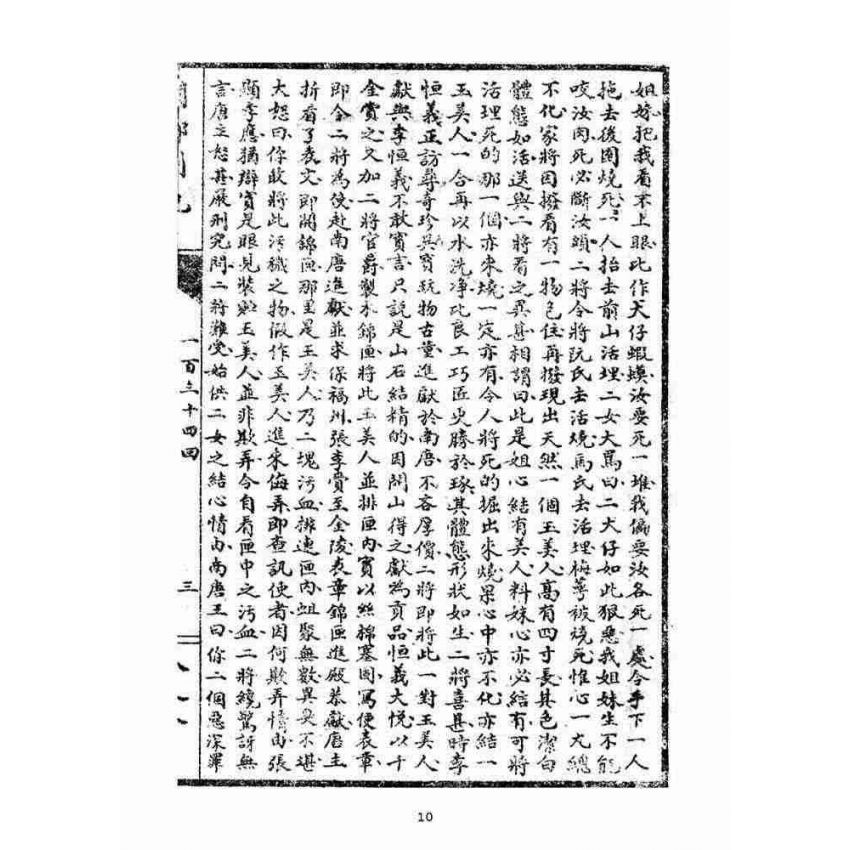 姐妹把我看不上眼比作犬仔蝦蟆汝要死一堆我偏要汝各死一處令手下一人
拖去後園燒死一人抬去前山活埋二女大罵曰二犬仔如此狠惡我姐妹生不能
咬汝肉死必斷汝頭二將令將阮氏去活燒馬氏去活埋梅萼被燒死惟心一丸總
不化家將因撥看有一物包住再撥現出天然一個玉美人高有四寸長其色潔白
體態如活送與二將看之異甚相謂曰此是姐心結有美人料妹心亦必結有可將
活埋死的那一個亦來燒一定亦有令人將死的掘出來燒果心中亦不化亦結一
玉美人一合再以水洗淨比良工巧匠更勝於琢其體態形狀如生二將喜甚時李
恒義正訪尋奇珍異寶玩物古董進獻於南唐不吝厚價二將即將此一對玉美人
獻與李恒義不敢實言只說是山石結精的因開山得之獻為貢品恒義大悅以千
金賞之又加二將官爵製木錦匣將此玉美人並排匣內實以絲棉塞固寫便表章
即令二將為使赴南唐進獻並求保福州張李賫至金陵表章錦匣進殿恭獻唐主
折看了表文即開錦匣那里是玉美人乃二塊污血排連匣內蛆聚無數異臭不堪
大怒曰你敢將此污穢之物假作玉美人進來侮弄即查訊使者因何欺弄情由張
顯李應猶辯實是眼見裝貯玉美人並非欺弄令自看匣中之污血二將纔驚訝無
言唐主怒甚嚴刑究問二將難受始供二女之結心情由南唐王曰你二個惡深罪
一百三十四回
三
10